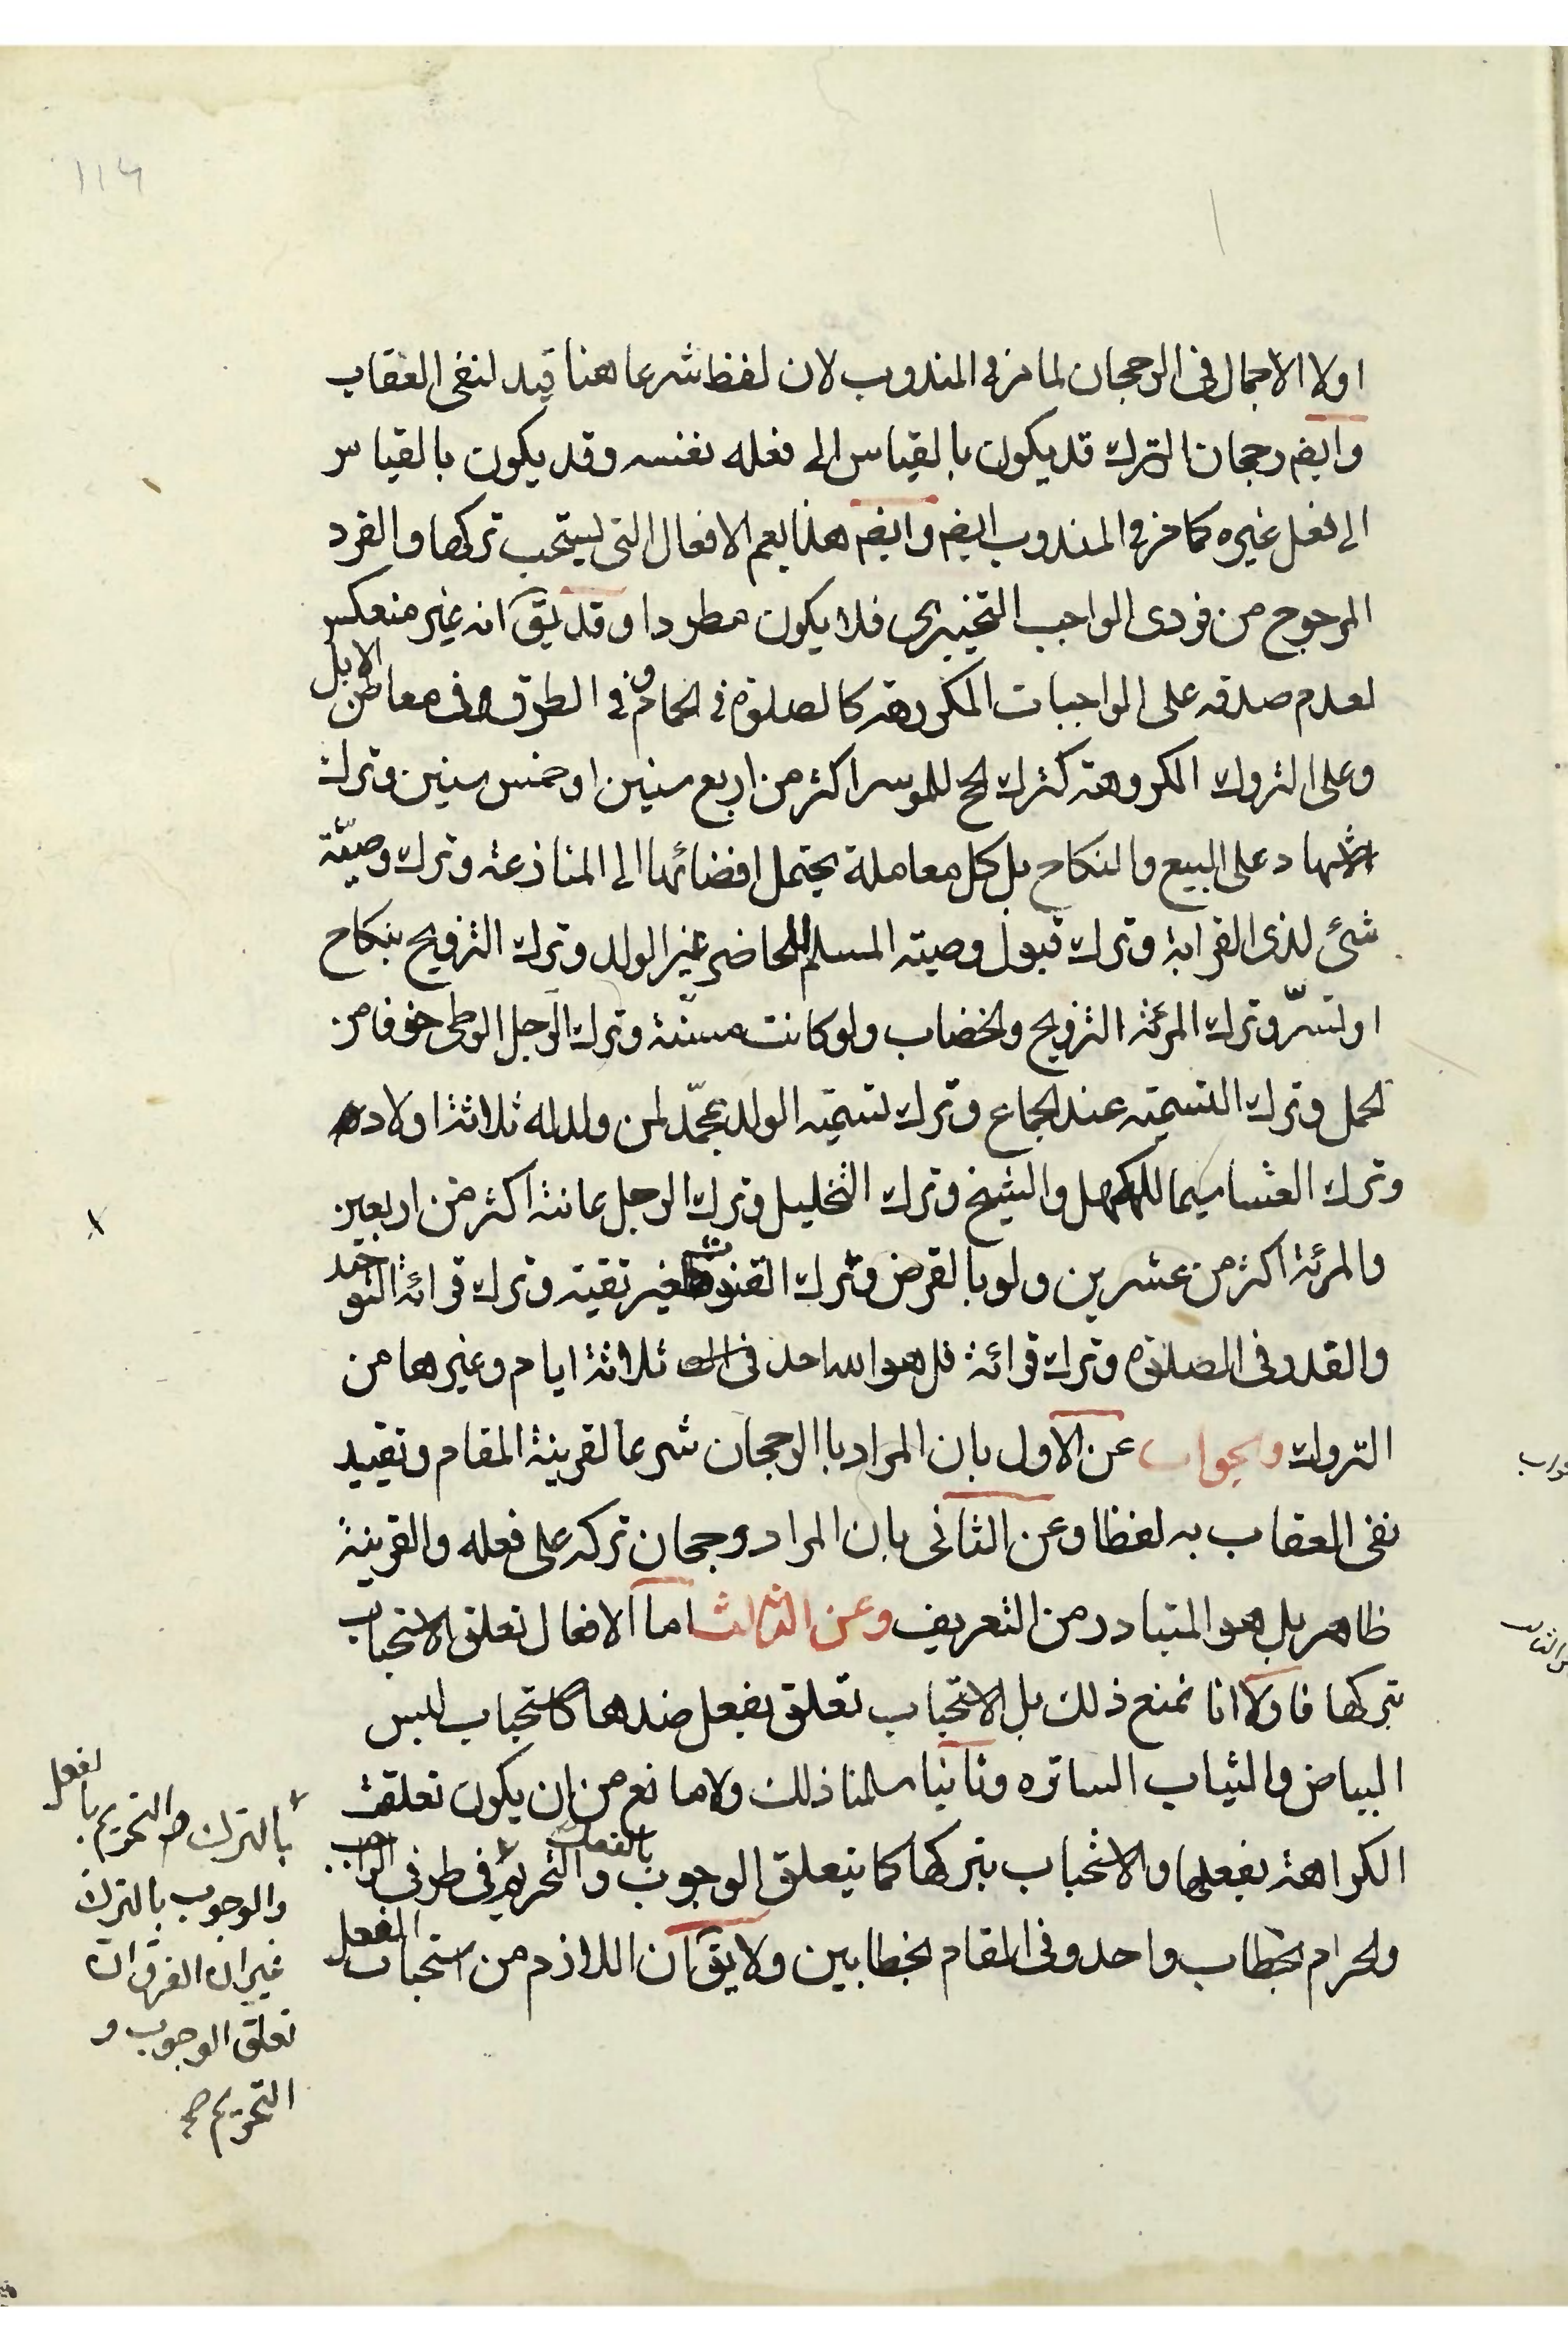 ١١٤
اولا الاجمال فى الرجحان لما مر فى المندوب لان لفظ شرعا هنا قيد لنفى العقاب
وايضم رجحان الترك قد يكون بالقياس الى فعله نفسه وقد يكون بالقياس
الى فعل غيره كما مر فى المندوب ايضم وايضم هذا يعم الافعال التى يستحب تركها والفرد
المرجوح من فردى الواجب التخييرى فلا يكون مطردا وقد يق انه غير منعكس
لعدم صدقه على الواجبات المكروهة كالصلوة فى الحمام وفى الطرق وفى معاطن الابل
وعلى التروك المكروهة كترك الحج للموسر اكثر من اربع سنين او خمس سنين وترك
الاشهاد على البيع والنكاح بل كل معاملة يحتمل افضائها الى المنازعة وترك وصيّة
شئ لذى القرابة وترك قبول وصيته المسلم للحاضر غير الولد وترك التزويج بنكاح
او تسرّ وترك المرئة التزويج والخضاب ولو كانت مسنّة وترك الرجل الوطى خوفا من
الحمل وترك التسمية عند الجماع وترك تسمية الولد بمحمّد لمن ولد له ثلاثة اولاد
وترك العشا سيما للكهل والشيخ وترك التخليل وترك الرجل عانته اكثر من اربعين
والمرئة اكثر من عشرين ولو بالقرض وترك القنوت لغير تقية وترك قرائة التوحيد
والقدر فى الصلوة وترك قرائة قل هو الله احد فى ثلاثة ايام وغيرها من
التروك والجواب عن الاول بان المراد با الرجحان شرعا لقرينة المقام وتقييد
نفى العقاب به لفظا وعن الثانى بان المراد رجحان تركه على فعله والقرينة
ظاهر بل هو المتبادر من التعريف وعن الثالث اما الافعال تعلق الاستحباب
بتركها فاولا انا نمنع ذلك بل الاستحباب تعلق بفعل ضدها كاستحباب لبس
البياض والثياب الساتره وثانيا سلمنا ذلك ولا مانع من ان يكون تعلقت
الكراهة بفعلها والاستحباب بتركها كما يتعلق الوجوب بالفعل والتحريم فى طرفى الواجب
والحرام بخطاب واحد وفى المقام بخطابين ولا يق ان اللازم من استحباب الفعل
بالترك والتحريم بالفعل
والوجوب بالترك
غير ان الفرق ان
تعلق الوجوب و
التحريم صح